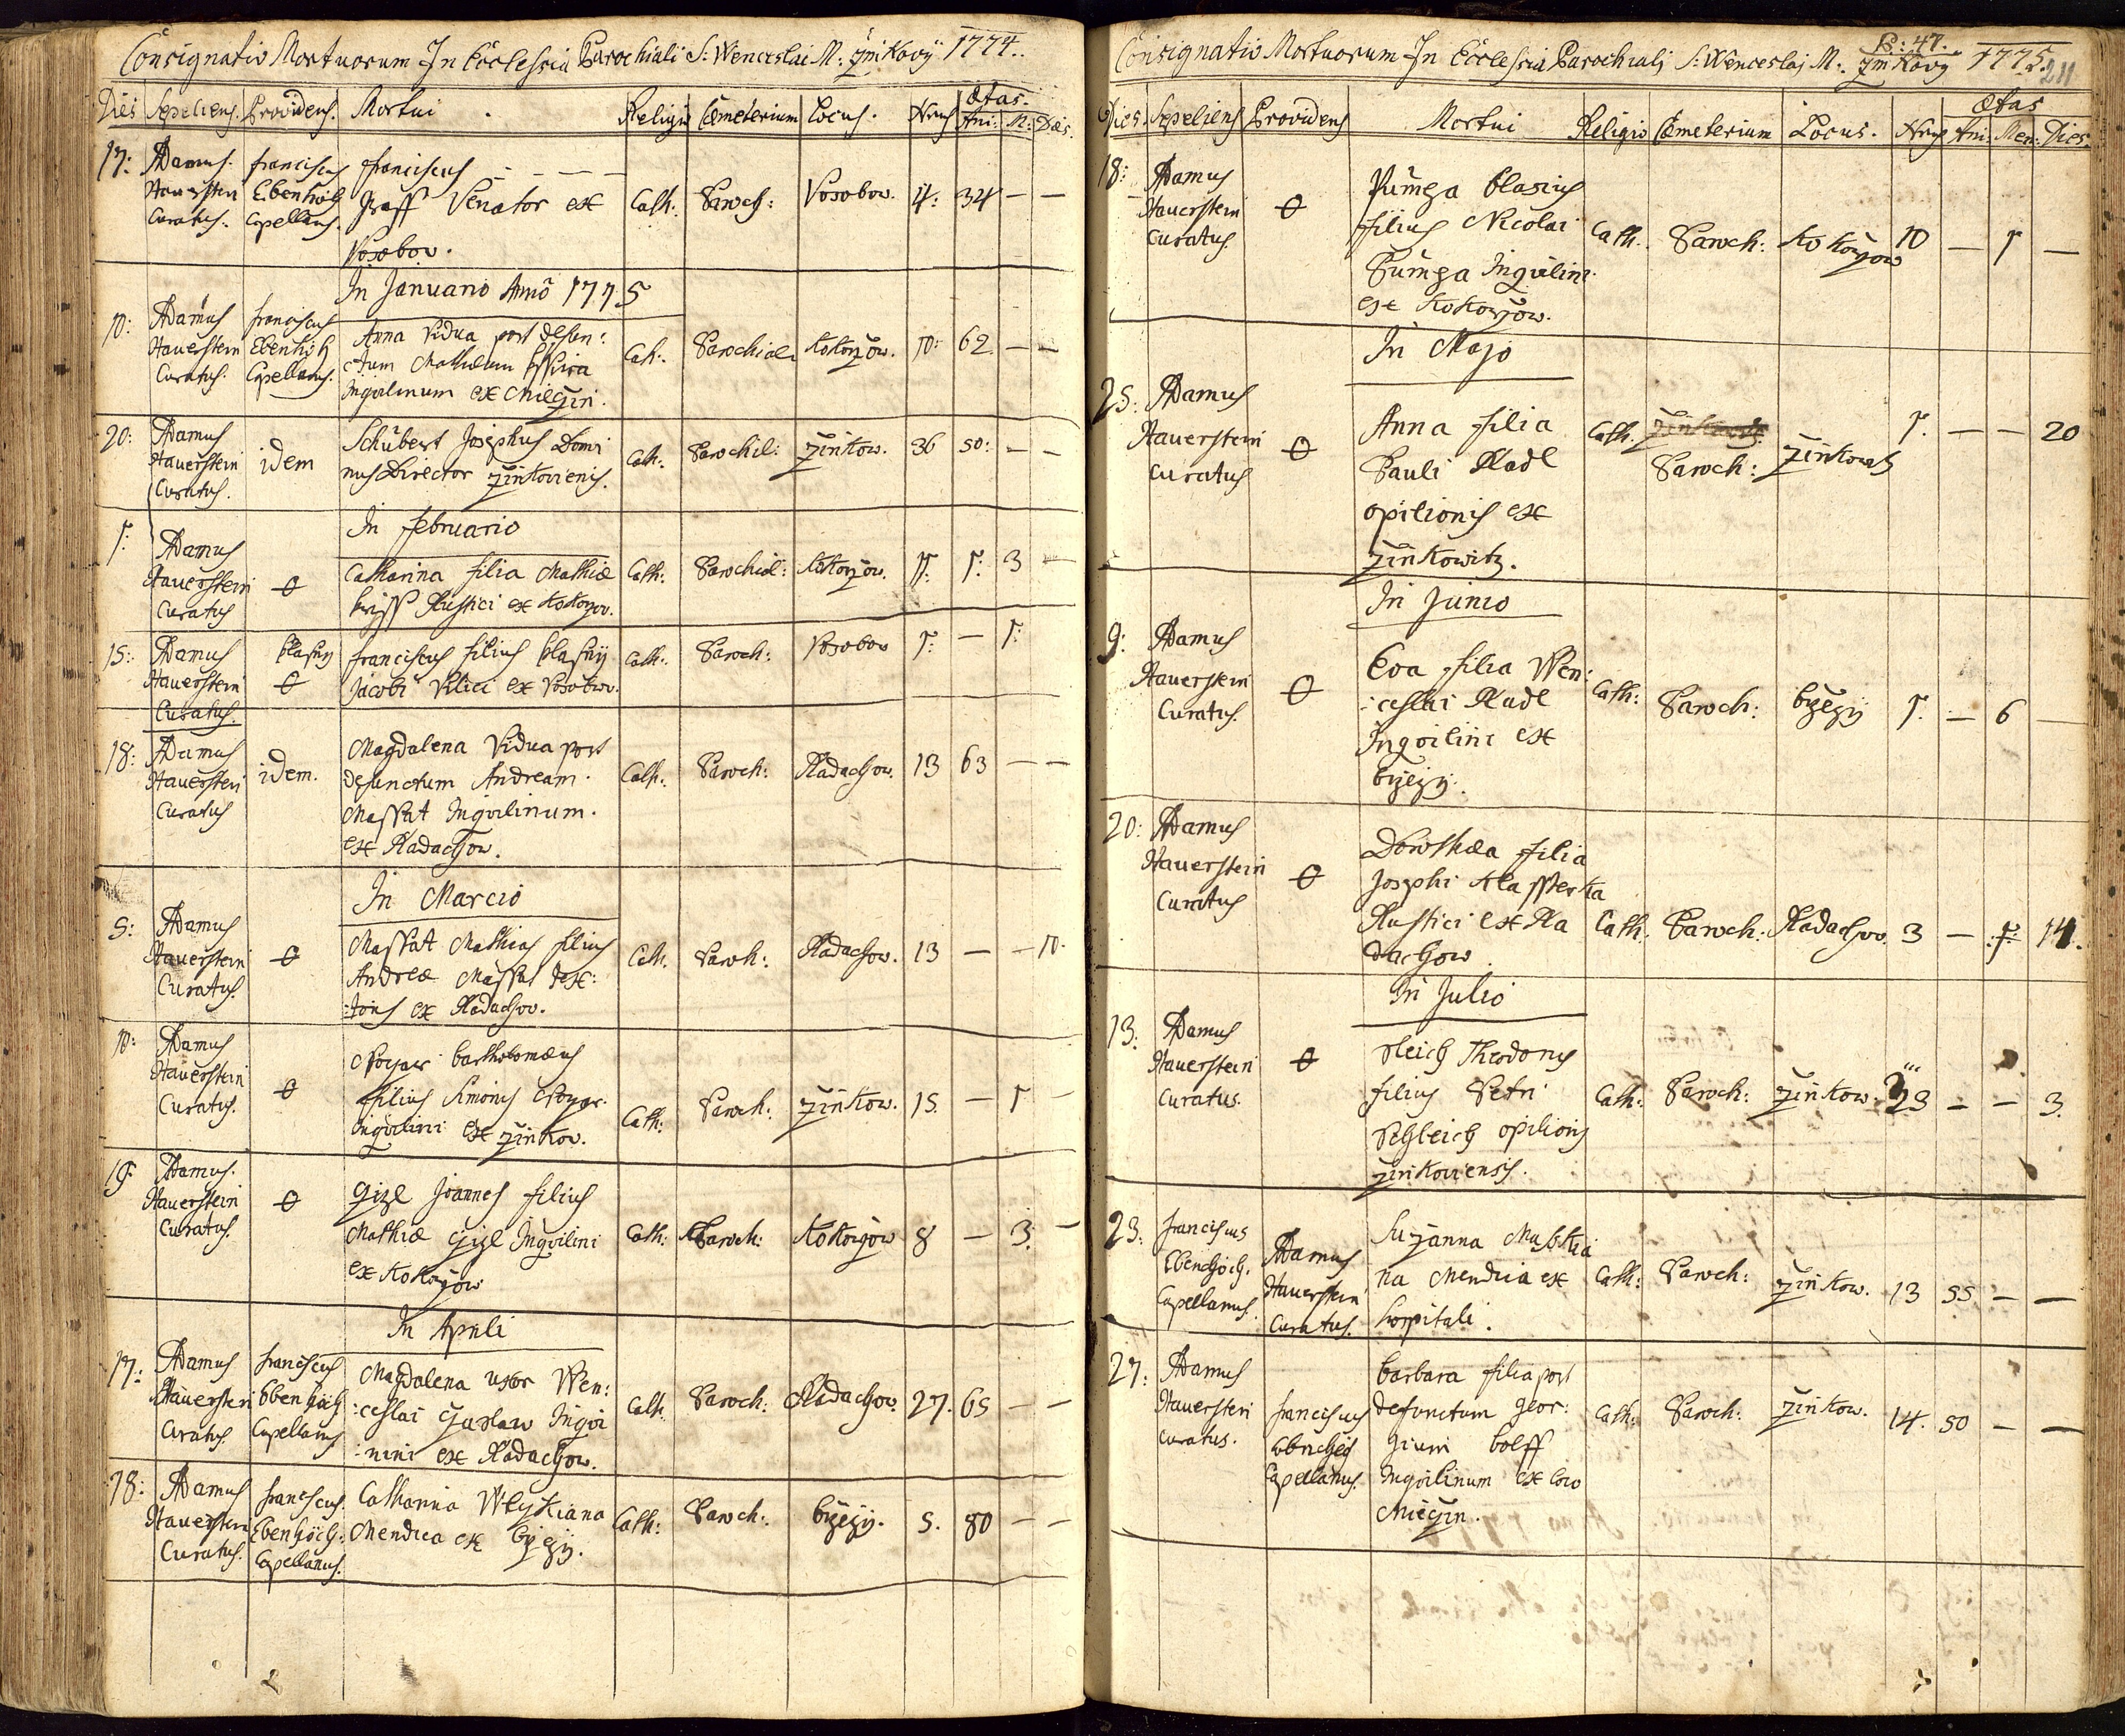 Consignatio Mortuorum In Ecclesia Parochiali S: Wenceslai M: 1774.
Dies Sepeliens. Providens. Mortui Religio Cæmeterium Locus. Nrus Ætas.
Ani: M: Dies.
17: Adamus Hauerstein Curatus. franciscus Capellanus. franciscus
Graff Venator ex Cath: Paroch: Vosobow. 4: 34 — —
Vosobow.
In Januario Anno 1775
10: Adamus Hauerstein Curatus. franciscus Capellanus. Anna Vidua post defun:
ctum Mathæum
Inquilinum ex Cath: Parochial: Kokorzow. 10: 62 — —
20: Adamus Hauerstein Curatus. idem Schubert Josephus Domi
nus Director Zinkoviensis. Cath: Parochil: Zinkow. 36 50: — —
In februario
1: Adamus Hauerstein Curatus ө Catharina filia Mathiæ
Rustici ex Kokorzov. Cath: Parochial: Kokorzow. 11: 1: 3 —
15: Adamus Hauerstein Curatus. ө franciscus filius
Jacobi Vilici ex Vosobow. Cath: Paroch: Vosobow 1: — 1:
18: Adamus Hauerstein Curatus idem. Magdalena Vidua post
defunctum Andream
Massat Inquilinum.
ex Radachow. Cath: Paroch: Radachow. 13 63 — —
In Marcio
5: Adamus Hauerstein Curatus. ө Massat Mathias filius
Andreæ Massat
ex Radachov. Cath: Paroch: Radachow. 13 — — 10.
10: Adamus Hauerstein Curatus. ө Bartholomæus
filius Simonis
Inquilini ex Zinkov. Cath: Paroch: Zinkow. 15 — 1 —
19: Adamus. Hauerstein Curatus. ө Gizl Joannes filius
Mathiæ Gizl Inquilini
ex Kokorzow Cath: Paroch: Kokorzow 8 — 3: —
In Aprili
17: Adamus Hauerstein Curatus. franciscus Ebenhöch Capellanus Magdalena uxor Wen:
:ceslai Inqui
:nini ex Radachow. Cath. Paroch: Radachow. 27. 65 — —
18: Adamus Hauerstein Curatus. franciscus. Ebenhöch: Capellanus. Catharina
Mendica ex Cath: Paroch: 5. 80 — —
P: 47.
Consignatio Mortuorum In Ecclesia Parochiali S: Wenceslai M: 1775. 211
Dies. Sepeliens Providens Mortui Religio Cæmeterium Locus. Nrus Ætas
Ani: Men: Dies.
18: Adamus Hauerstein Curatus. ө Pumpa Blasius
filius Nicolai
Pumpa Inquilini
ex Kokorzow. Cath. Paroch: Kokorzow 10 — 1 —
In Majo
25: Adamus Hauerstein Curatus ө Anna filia
Pauli Kadl
opilionis ex
Zinkowitz. Cath. Paroch: Zinkowitz 1. — — 20
In Junio
9: Adamus Hauerstein Curatus. ө Eva filia Wen:
:ceslai Kadl
Inquilini ex
Cath: Paroch: 1. — 6 —
20: Adamus Hauerstein Curatus ө Dorothæa filia
Josephi
Rustici ex Ra
dachow. Cath: Paroch: Radachov. 3 — 1: 14.
In Julio
13: Adamus Hauerstein Curatus. ө Theodorus
filius Petri
Schleich opilionis
Zinkoviensis. Cath: Paroch: Zinkow. 23 — — 3.
23: franciscus Ebenhöch. Capellanus. Adamus Hauerstein Curatus. Suzanna
na Mendica ex
hospitali. Cath: Paroch: Zinkow. 13 55 — —
27: Adamus Hauerstein Curatus. franciscus Capellanus. Barbara filia post
defunctum Geor:
gium Bolff
Inquilinum ex
Cath: Paroch: Zinkow. 14. 50 — —